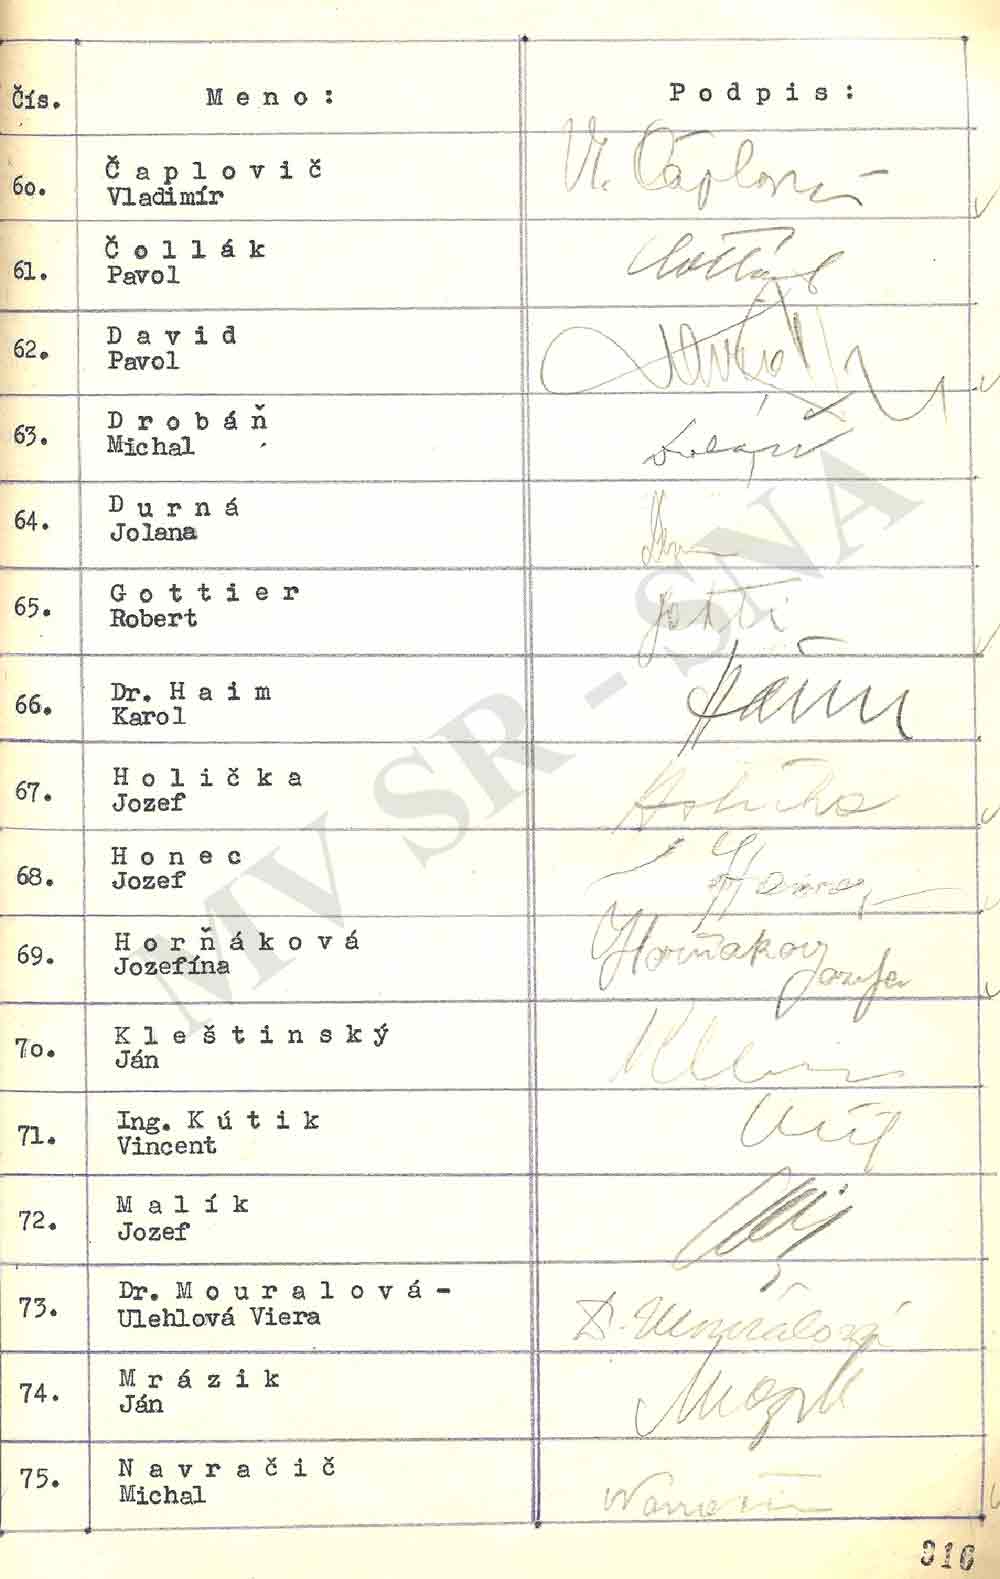 Čís.
Meno:
Podpis:
60.
Čaplovič
Vladimír
Vl. Čaplovič
61.
Čollák
Pavol
Čollák
62.
David
Pavol
63.
Drobáň
Michal
64.
Durná
Jolana
65.
Gottier
Robert
66.
Dr. Haim
Karol
Haim
67.
Holička
Jozef
Holička
68.
Honec
Jozef
69.
Horňáková
Jozefína
70.
Kleštinský
Ján
71.
Ing. Kútik
Vincent
72.
Malík
Jozef
73.
Dr. Mouralová-
Ulehlová Viera
Dr. Mouralová
74.
Mrázik
Ján
75.
Navračič
Michal
MV SR - SNA
316